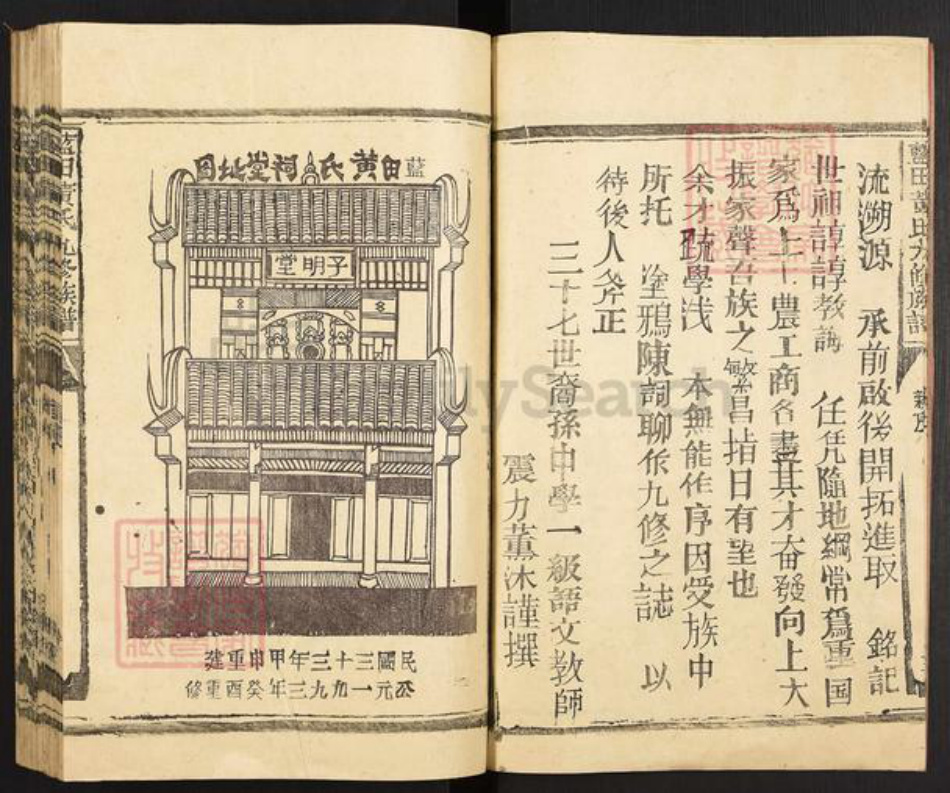 流溯源 承前啟後開拓進取 銘記
世祖諄諄教誨 任凭隨地綱常為重国
家為上士農工商各盡其才奋發向上大
振家聲吾族之繁昌指日有望也
余才疏學浅 本無能作序因受族中
所托 塗鴉陳詞聊作九修之誌 以
待後人斧正
三十七世裔孫中學一級語文教師
震力薰沐謹撰
藍田黄氏九修族譜
藍田黄氏祠堂址圖
子明堂
民國三十三年甲申重建
公元一九九三年癸酉重修
藍田黄氏九修族譜
FamilySearch